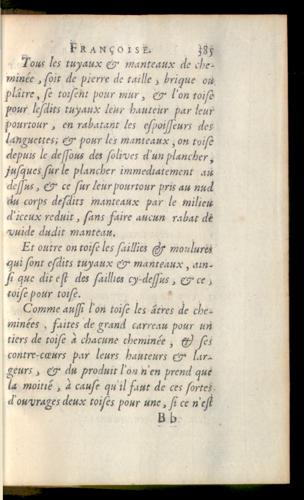 FRANÇOISE. 385
Tous les tuyaux & manteaux de che-
minée, soit de pierre de taille, brique ou
plâtre, se toisent pour mur, & l'on toise
pour lesdits tuyaux leur hauteur par leur
pourtour, en rabatant les espoisseurs des
languettes; & pour les manteaux, on toise
depuis le dessous des solives d'un plancher,
jusques sur le plancher immediatement au
dessus, & ce sur leur pourtour pris au nud
du corps desdits manteaux par le milieu
d'iceux reduit, sans faire aucun rabat de
vuide dudit manteau.
Et outre on toise les saillies & moulures
qui sont esdits tuyaux & manteaux, ain-
si que dit est des saillies cy-dessus, & ce,
toise pour toise.
Comme aussi l'on toise les âtres de che-
minées, faites de grand carreau pour un
tiers de toise à chacune cheminée, & ses
contre-cœurs par leurs hauteurs & lar-
geurs, & du produit l'on n'en prend que
la moitié, à cause qu'il faut de ces sortes
d'ouvrages deux toises pour une, si ce n'est
B b